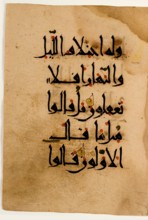 وله اختلاف الليل
والنهار افلا
تعقلون بل قالوا
مثل ما قال
الاولون قالوا